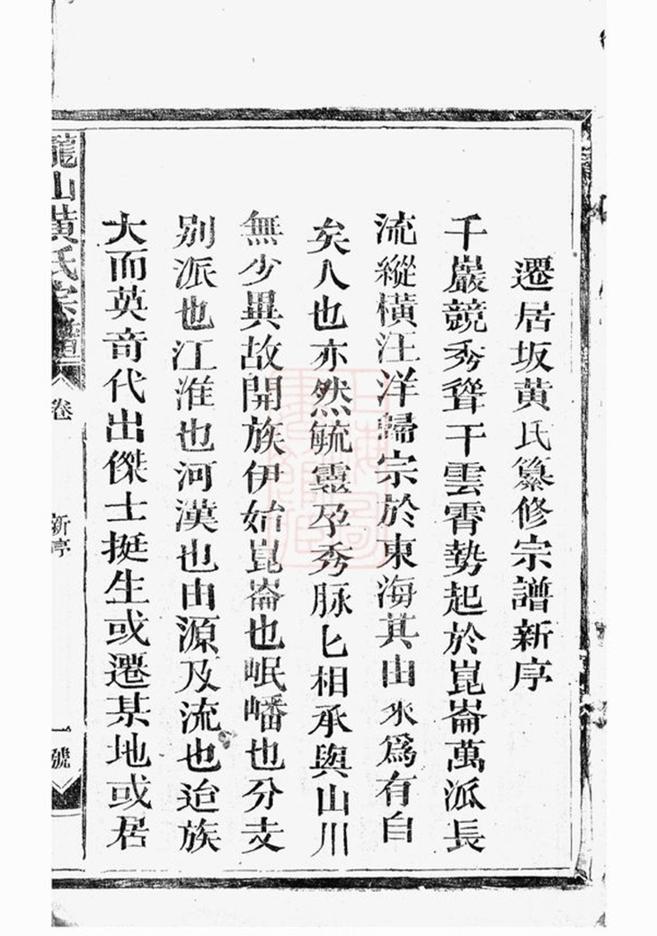 遷居坂黄氏纂修宗譜新序
千巖競秀聳干雲霄勢起於崑崙萬派長
流縱橫汪洋歸宗於東海其由來爲有自
矣人也亦然毓靈孕秀脉匕相承與山川
無少異故開族伊始崑崙也岷嶓也分支
别派也江淮也河漢也由源及流也迨族
大而英奇代出傑士挺生或遷某地或居
龍山黄氏宗譜
卷
新序
一號